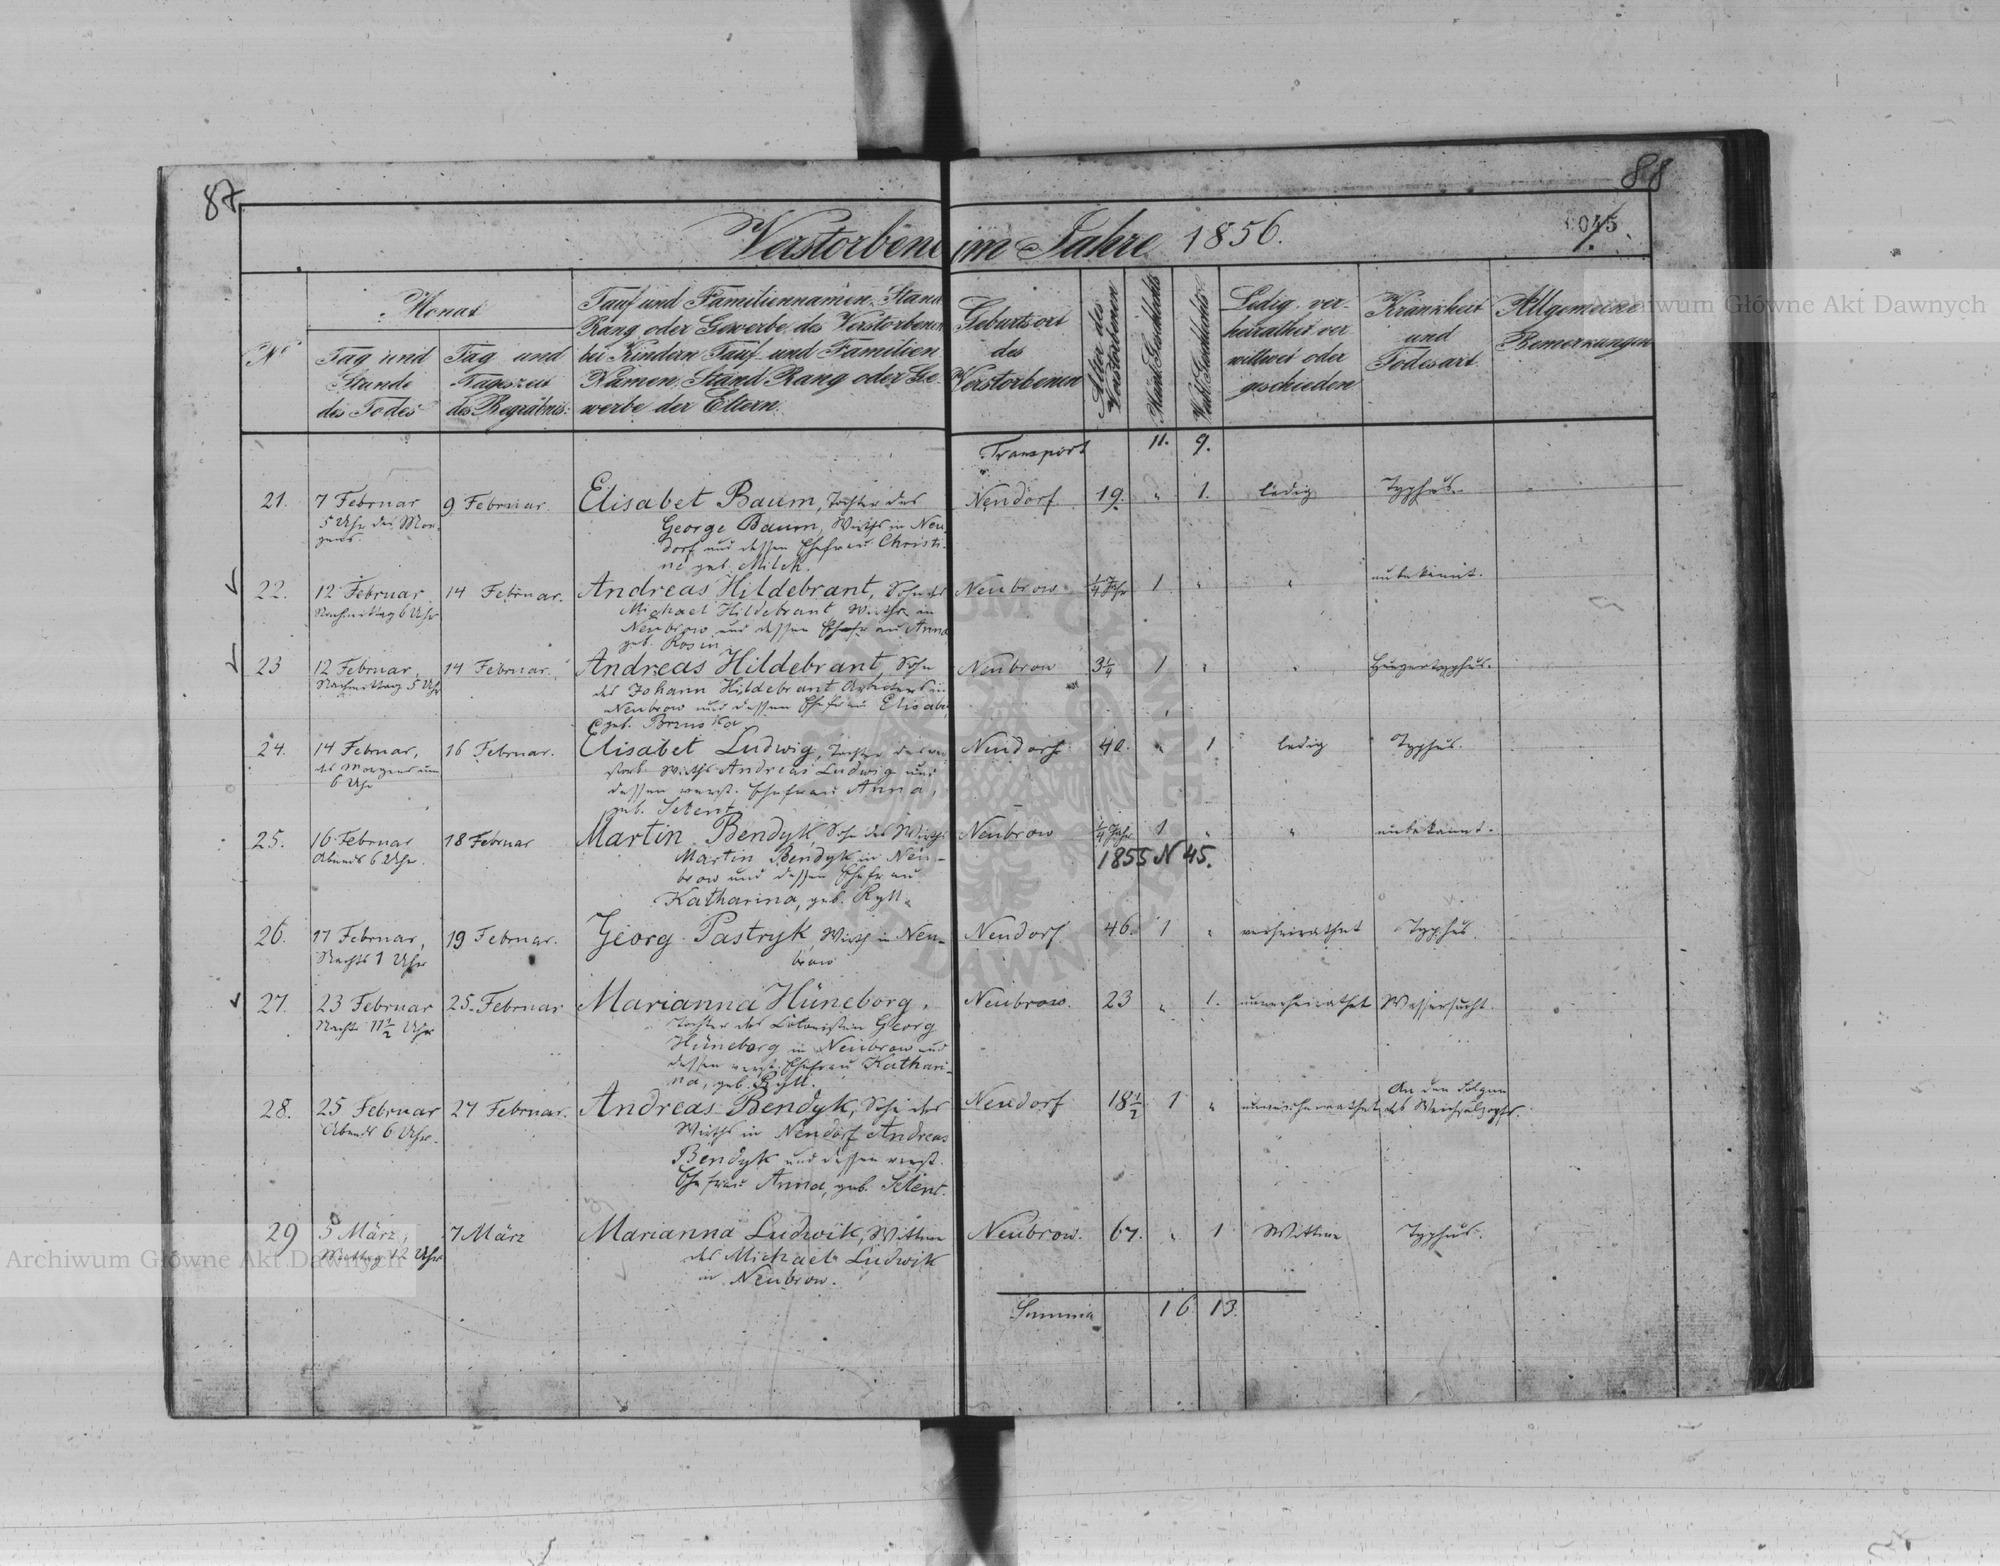 87
88
Verstorbene im Jahre 1856.
Archiwum Główne Akt Dawnych
No
Monat
Tag und
Stunde
des Todes
Tag und
Tageszeit
des Begräbnis:
Tauf und Familiennamen, Stand
Rang oder Gewerbe des Verstorbenen
bei Kindern Tauf und Familien
Namen, Stand Rang oder Ge-
werbe der Eltern.
Geburtsort
des
Verstorbenen
Alter des
Verstorbenen
Männl. Geschlechts
Weibl. Geschlechts
Ledig, ver-
heirathet ver
wittwet oder
geschieden
Krankheit
und
Todesart
Allgemeine
Bemerkungen
Transport 11. 9.
21. 7 Februar 9 Februar. Elisabet Baum, Tochter des Neudorf 19. " 1. ledig Typhus.
5 Uhr des Mor-
gens.
George Baum, Wirths in Neu
dorf und dessen Ehefrau Christi-
ne geb. Milek.
22. 12 Februar 14 Februar. Andreas Hildebrant, Sohn des Neubrow 1/4 Jahr 1 " " unbekannt.
Nachmittag 6 Uhr
Michael Hildebrant Wirths in
Neubrow und dessen Ehefrau Anna
geb. Rosin
23 12 Februar, 14 Februar. Andreas Hildebrant, Sohn Neubrow 3 1/4 1 " " Hungertyphus.
Nachmittag 5 Uhr
des Johann Hildebrant Arbeiters in
Neubrow und dessen Ehefrau Elisabe
geb. Bruska
24. 14 Februar, 16 Februar. Elisabet Ludwig, Tochter des ver Neudorf 40. " 1 ledig Typhus.
des Morgens um
6 Uhr
storb. Wirths Andreas Ludwig und
dessen verst. Ehefrau Anna,
geb. Selent
25. 16 Februar 18 Februar Martin Bendyk, Sohn des Wirths Neubrow 1/4 Jahr 1 " " unbekannt.
Abends 6 Uhr.
1855 N 45.
Martin Bendyk in Neu-
brow und dessen Ehefrau
Katharina, geb. Ryll.
26. 17 Februar, 19 Februar. Georg Pastryk, Wirth in Neu- Neudorf 46. 1 " verheirathet Typhus.
Nachts 1 Uhr
brow
27. 23 Februar 25. Februar Marianna Hüneborg, Neubrow. 23 " 1. unverheirathet Wassersucht.
Nachts 11 1/2 Uhr
Tochter des Colonisten Georg
Hüneborg in Neubrow und
dessen verst. Ehefrau Kathari-
na, geb. Ryll.
28. 25 Februar 27 Februar. Andreas Bendyk, Sohn des Neudorf 18 1/2 1 " unverheirathet An den Folgen
des Weichselzopfs.
Abends 6 Uhr.
Wirths in Neudorf Andreas
Bendyk und dessen verst.
Ehefrau Anna, geb. Selent.
29 5 März, 7 März Marianna Ludwik, Wittwe Neubrow. 67. " 1 Wittwe Typhus.
Mittag 12 Uhr
des Michael Ludwik
in Neubrow.
Archiwum Główne Akt Dawnych
Summa 16 13.